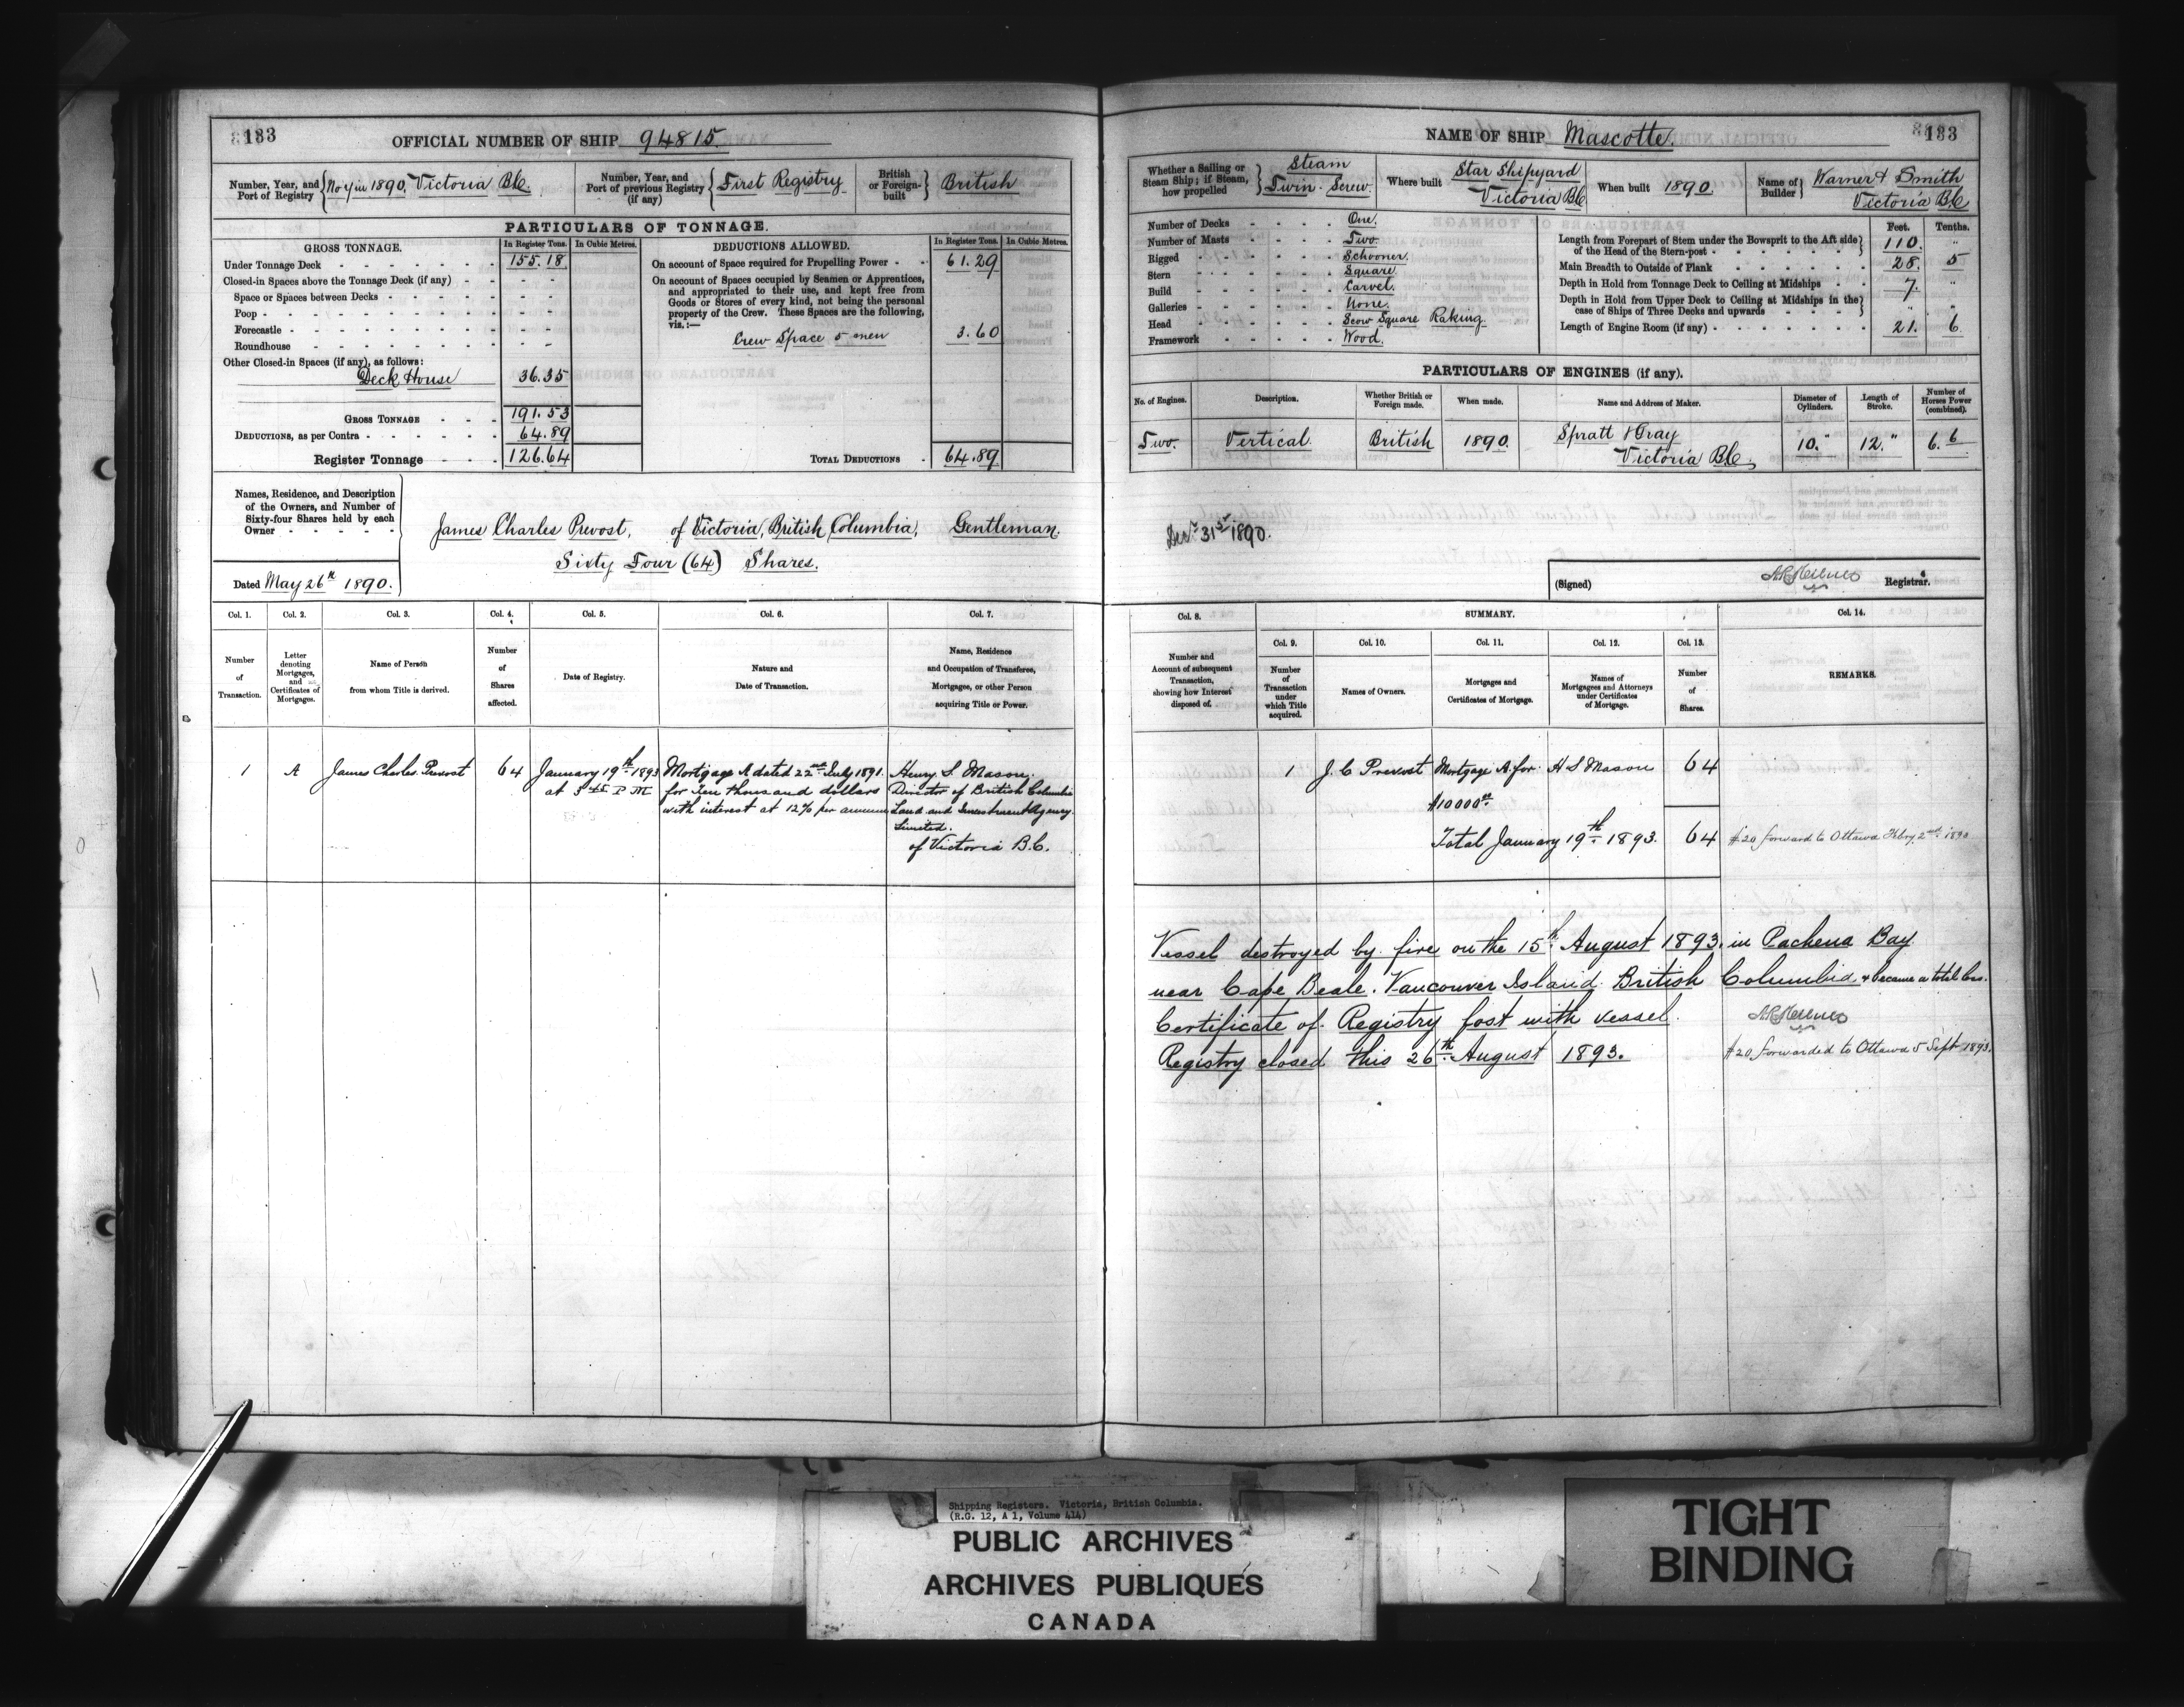 133
OFFICIAL NUMBER OF SHIP 94815.
Number, Year, and Port of Registry { No 4 in 1890, Victoria B.C.
Number, Year, and Port of previous Registry (if any) { First Registry
British or Foreign-built } British
PARTICULARS OF TONNAGE.
GROSS TONNAGE. In Register Tons. In Cubic Metres.
Under Tonnage Deck - - - - - - - 155.18
Closed-in Spaces above the Tonnage Deck (if any) - - - -
Space or Spaces between Decks - - - - - - - -
Poop - - - - - - - - - - - -
Forecastle - - - - - - - - - - -
Roundhouse - - - - - - - - - -
Other Closed-in Spaces (if any), as follows:
Deck House 36.35
GROSS TONNAGE - - - 191.53
DEDUCTIONS, as per Contra - - - - - - 64.89
Register Tonnage - - - 126.64
DEDUCTIONS ALLOWED. In Register Tons. In Cubic Metres.
On account of Space required for Propelling Power - - 61.29
On account of Spaces occupied by Seamen or Apprentices,
and appropriated to their use, and kept free from
Goods or Stores of every kind, not being the personal
property of the Crew. These Spaces are the following,
viz.:—
Crew Space 5 men 3.60
TOTAL DEDUCTIONS - 64.89
Names, Residence, and Description
of the Owners, and Number of
Sixty-four Shares held by each
Owner - - - - -
James Charles Prevost, of Victoria, British Columbia, Gentleman.
Sixty Four (64) Shares.
Dated May 26th 1890.
Col. 1. Col. 2. Col. 3. Col. 4. Col. 5. Col. 6. Col. 7.
Number of Transaction.
Letter denoting Mortgages, and Certificates of Mortgages.
Name of Person from whom Title is derived.
Number of Shares affected.
Date of Registry.
Nature and Date of Transaction.
Name, Residence and Occupation of Transferee, Mortgagee, or other Person acquiring Title or Power.
1 A James Charles Prevost 64 January 19th 1893 Mortgage A dated 22nd July 1891. Henry S. Mason,
at 3 45 P.M for Ten thousand dollars Director of British Columbia
with interest at 12% per annum Land and Investment Agency
Limited.
of Victoria B.C.
NAME OF SHIP Mascotte.
133
Whether a Sailing or Steam Ship; if Steam, how propelled } Steam Twin Screw.
Where built Star Shipyard Victoria B.C.
When built 1890.
Name of Builder } Warner & Smith Victoria B.C.
Number of Decks - - - - One.
Number of Masts - - - - Two.
Rigged - - - - - Schooner.
Stern - - - - - Square
Build - - - - - Carvel.
Galleries - - - - - None.
Head - - - - - Scow Square Raking
Framework - - - - - Wood.
Feet. Tenths.
Length from Forepart of Stem under the Bowsprit to the Aft side
of the Head of the Stern-post - - - - - - } 110. "
Main Breadth to Outside of Plank - - - - - - 28. 5
Depth in Hold from Tonnage Deck to Ceiling at Midships - - 7. "
Depth in Hold from Upper Deck to Ceiling at Midships in the
case of Ships of Three Decks and upwards - - - - } " "
Length of Engine Room (if any) - - - - - - - 21. 6
PARTICULARS OF ENGINES (if any).
No. of Engines. Description. Whether British or Foreign made. When made. Name and Address of Maker. Diameter of Cylinders. Length of Stroke. Number of Horses Power (combined).
Two. Vertical. British 1890. Spratt & Gray Victoria B.C. 10." 12." 6.6
Decr 31st 1890.
(Signed) Registrar.
Col. 8. SUMMARY. Col. 14.
Col. 9. Col. 10. Col. 11. Col. 12. Col. 13.
Number and Account of subsequent Transaction, showing how Interest disposed of.
Number of Transaction under which Title acquired.
Names of Owners.
Mortgages and Certificates of Mortgage.
Names of Mortgagees and Attorneys under Certificates of Mortgage.
Number of Shares.
REMARKS.
1 J. C Prevost Mortgage A for H S Mason 64
$10000
Total January 19th 1893. 64 #20 forward to Ottawa Feby 2nd
Vessel destroyed by fire on the 15th August 1893. in Pachena Bay
near Cape Beale. Vancouver Island. British Columbia. & became a total loss.
Certificate of Registry lost with vessel.
Registry closed this 26th August 1893. #20 forwarded to Ottawa 5 Sept 1893.
Shipping Registers. Victoria, British Columbia.
(R.G. 12, A 1, Volume 414)
PUBLIC ARCHIVES
ARCHIVES PUBLIQUES
CANADA
TIGHT
BINDING